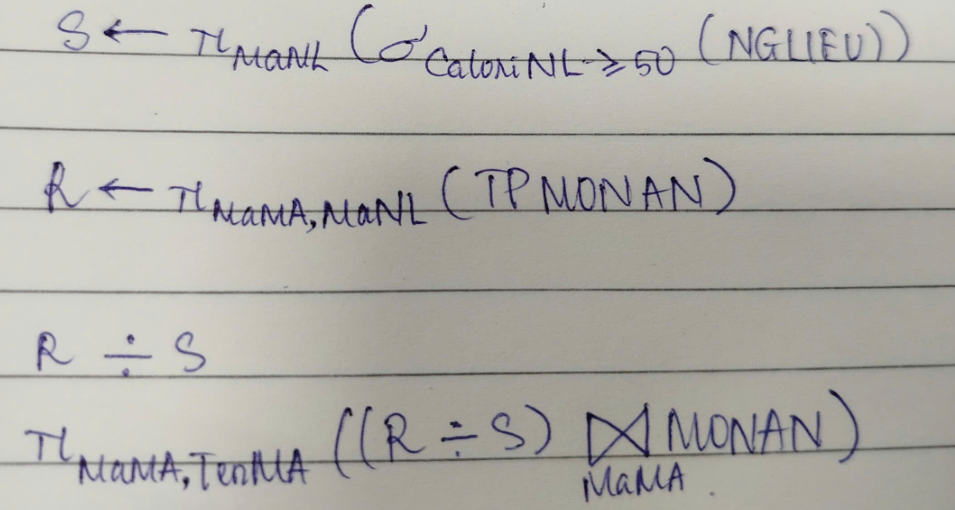 S ← π MaNL (σ CaloriNL ≥ 50 (NGLIEU))
R ← π MaMA, MaNL (TPMONAN)
R ÷ S
π MaMA, TenMA ((R ÷ S) ⋈ MONAN)
MaMA.